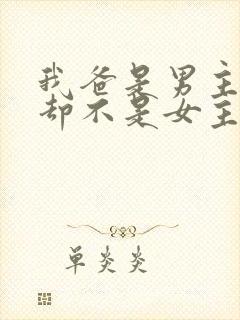 我爸是男主
却不是女主
单炎炎